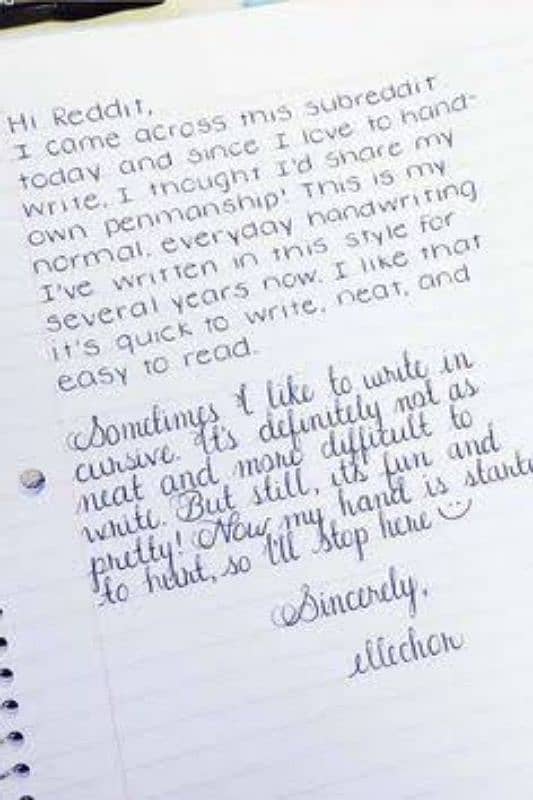 Hi Reddit,
I came across this subreddit
today and since I love to hand-
write, I thought I'd share my
own penmanship! This is my
normal, everyday handwriting
I've written in this style for
several years now. I like that
it's quick to write, neat, and
easy to read.
Sometimes I like to write in
cursive. It's definitely not as
neat and more difficult to
write. But still, it's fun and
pretty! Now my hand is startin
to hurt, so I'll stop here
Sincerely,
ellechon